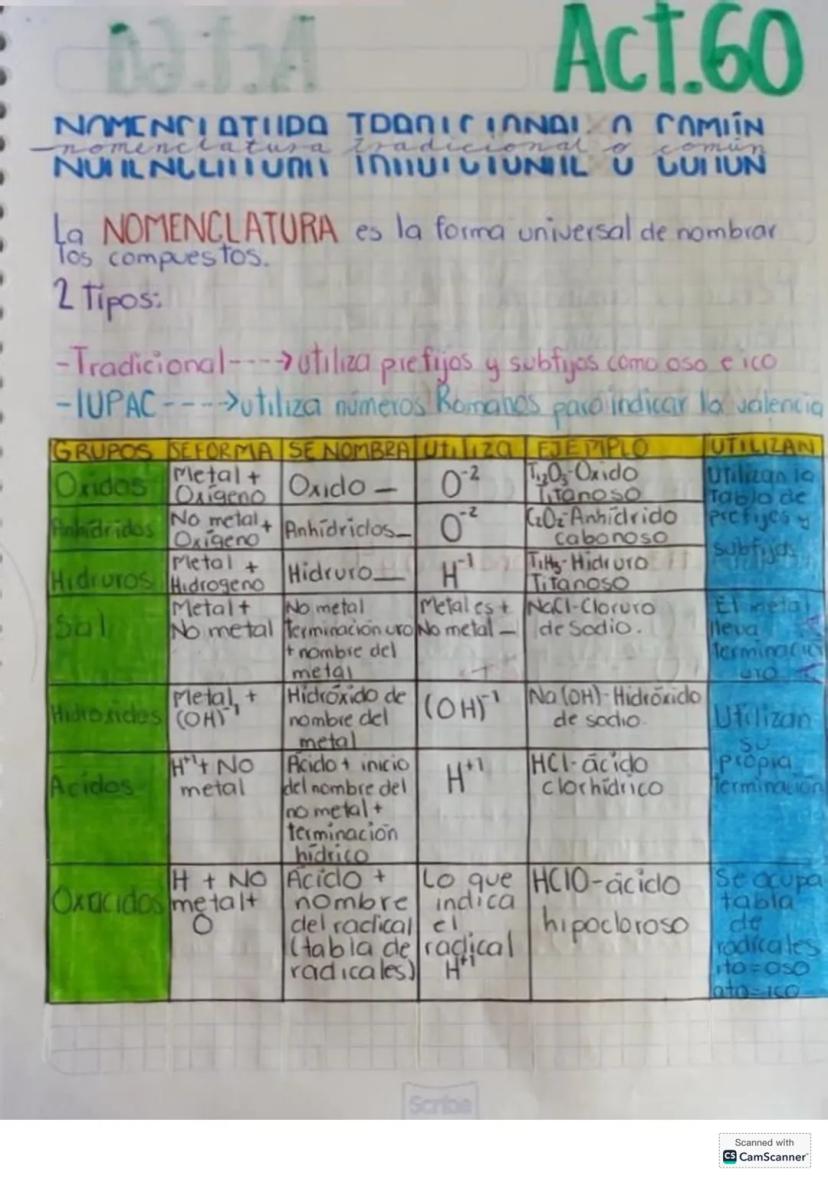 Act.60
NOMENCLATURA TRADICIONAL O COMÚN
nomenclatura tradicional o común
La NOMENCLATURA es la forma universal de nombrar
los compuestos.
2 Tipos:
-Tradicional----→utiliza prefijos y subfijos como oso e ico
-IUPAC----→utiliza números Romanos para indicar la valencia
GRUPOS SE FORMA SE NOMBRA Utiliza EJEMPLO UTILIZAN
Oxidos Metal + Oxígeno Oxido — O⁻² Ti₂O₃-Oxido Titanoso Utilizan la tabla de prefijos y subfijos
Anhídridos No metal + Oxígeno Anhídridos— O⁻² C₂O₂-Anhídrido cabonoso
Hidruros Metal + Hidrogeno Hidruro— H⁻¹ TiH₃-Hidruro Titanoso
Sal Metal + No metal No metal terminación uro + nombre del metal Metales + No metal — NaCl-Cloruro de Sodio. El metal lleva terminación uro
Hidroxidos Metal + (OH)⁻¹ Hidróxido de nombre del metal (OH)⁻¹ Na(OH)-Hidróxido de sodio Utilizan su propia terminación
Ácidos H⁺¹+ NO metal Ácido + inicio del nombre del no metal + terminación hídrico H⁺¹ HCl-ácido clorhídrico
Oxacidos H + NO metal + O Ácido + nombre del radical (tabla de radicales) Lo que indica el radical H⁺¹ HClO-ácido hipocloroso Se ocupa tabla de radicales ito=oso ato=ico
Scribe
Scanned with
CS CamScanner